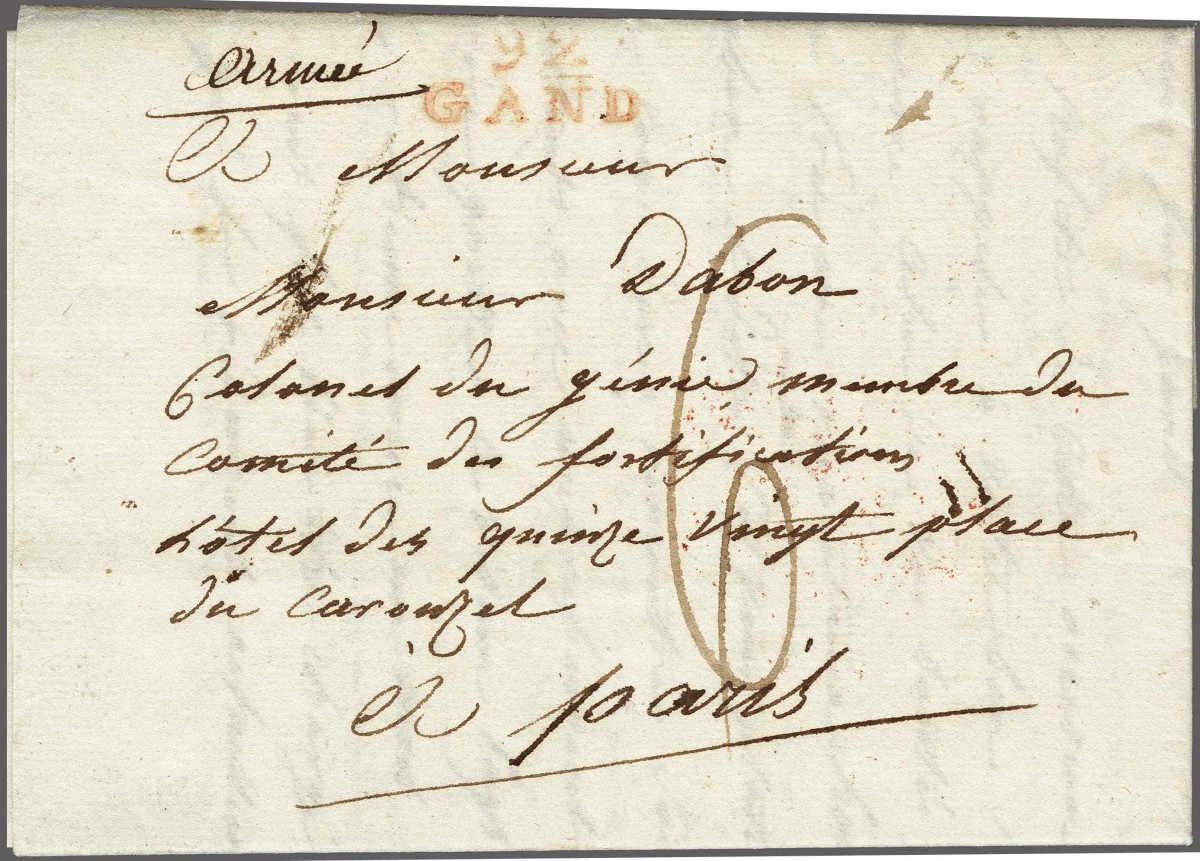 armée
92
GAND
A Monsieur
Monsieur Dabon
Colonel du génie membre du
Comité des fortifications
hôtel des quinze vingt place
du Carouzel
6
A paris